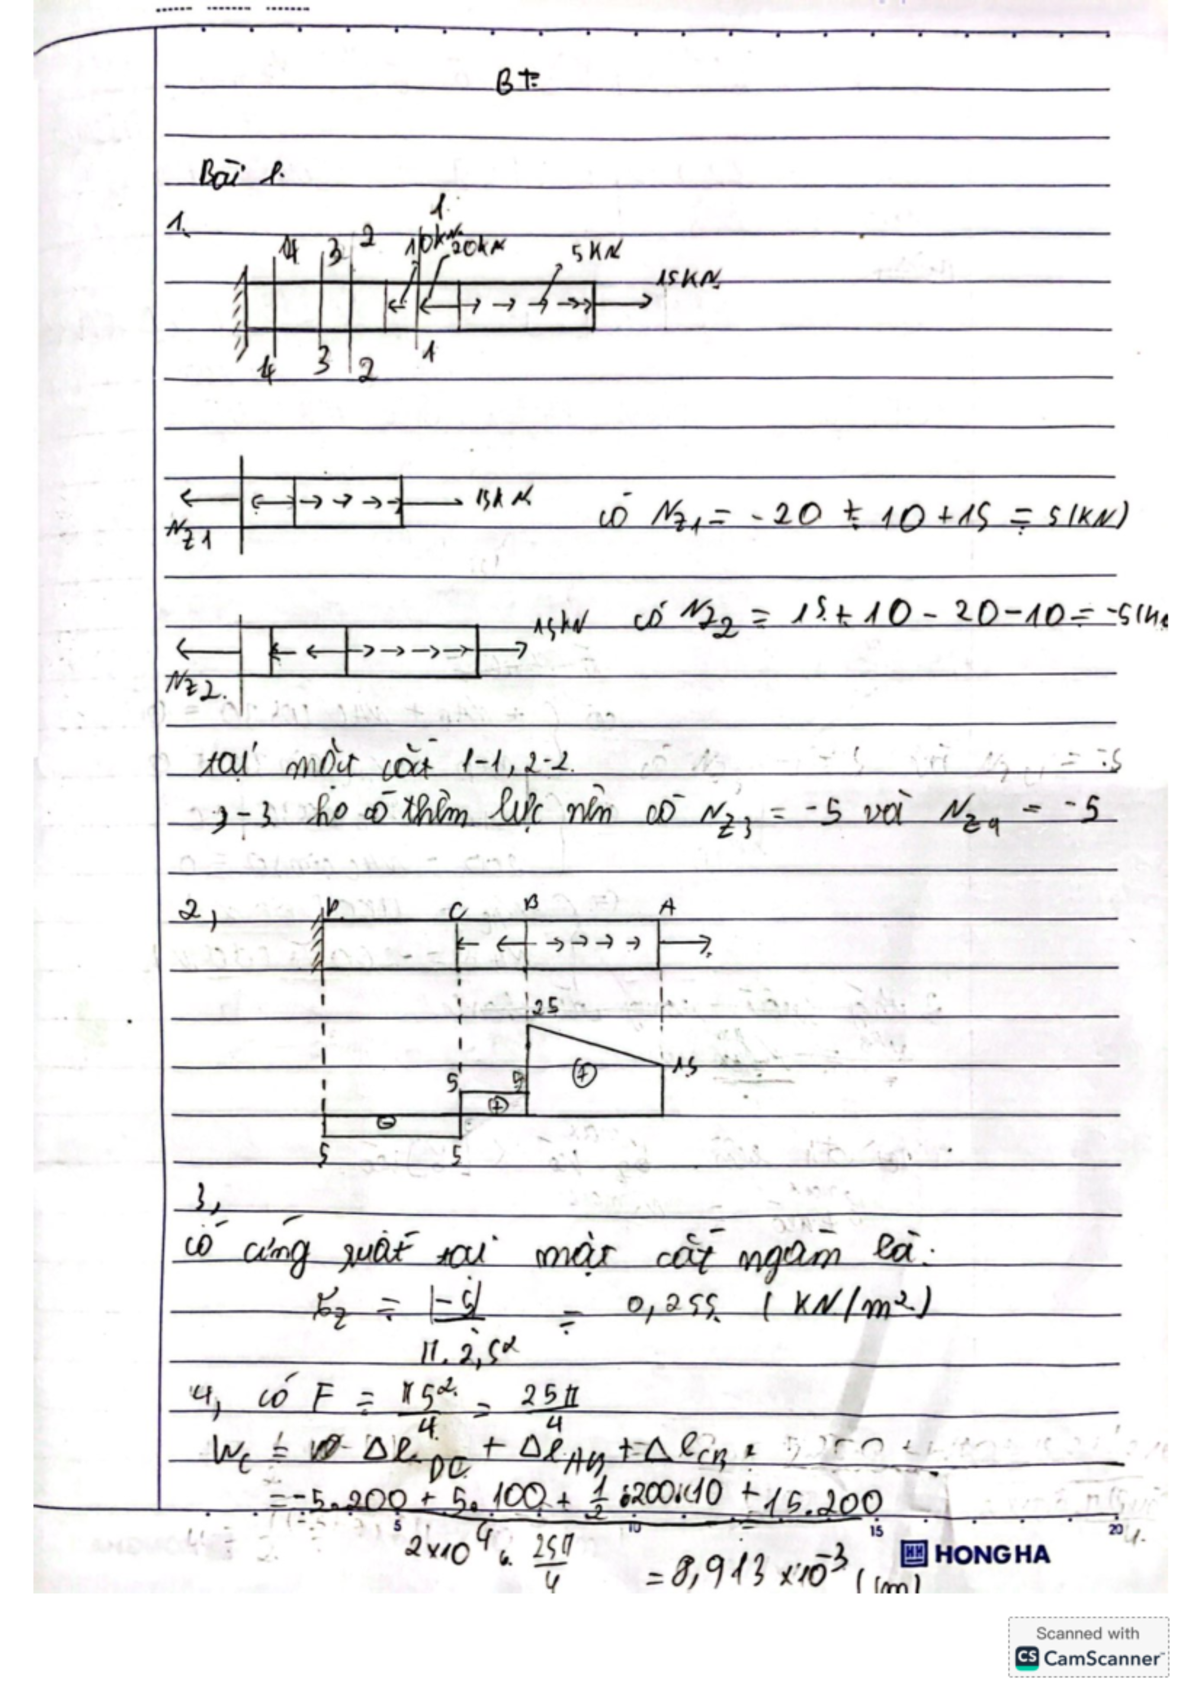 BT:
Bài 1.
1.
1.
4 3 2 10kN 20kN 5KN 15KN
4 3 2 1
15kN
Nz1
có Nz1 = -20 + 10 + 15 = 5(KN)
15kN
Nz2.
có Nz2 = 15 + 10 - 20 - 10 = -5(KN
tại mặt cắt 1-1, 2-2.
3-3 ko có thêm lực nên có Nz3 = -5 và Nz4 = -5
2,
D C B A
25
15
5 5
5 5
3,
có ứng suất tại mặt cắt ngàm là:
σz = |-5| / π.2,5² = 0,255 (KN/m²)
4, có F = π5²/4 = 25π/4
Wc = Δl DC + ΔlAB + ΔlCB
= -5.200 + 5.100 + 1/2 .200.10 + 15.200
2x10⁴. 25π/4
= 8,913 x10⁻³ (cm)
5 10 15 20
HONG HA
Scanned with
CS CamScanner